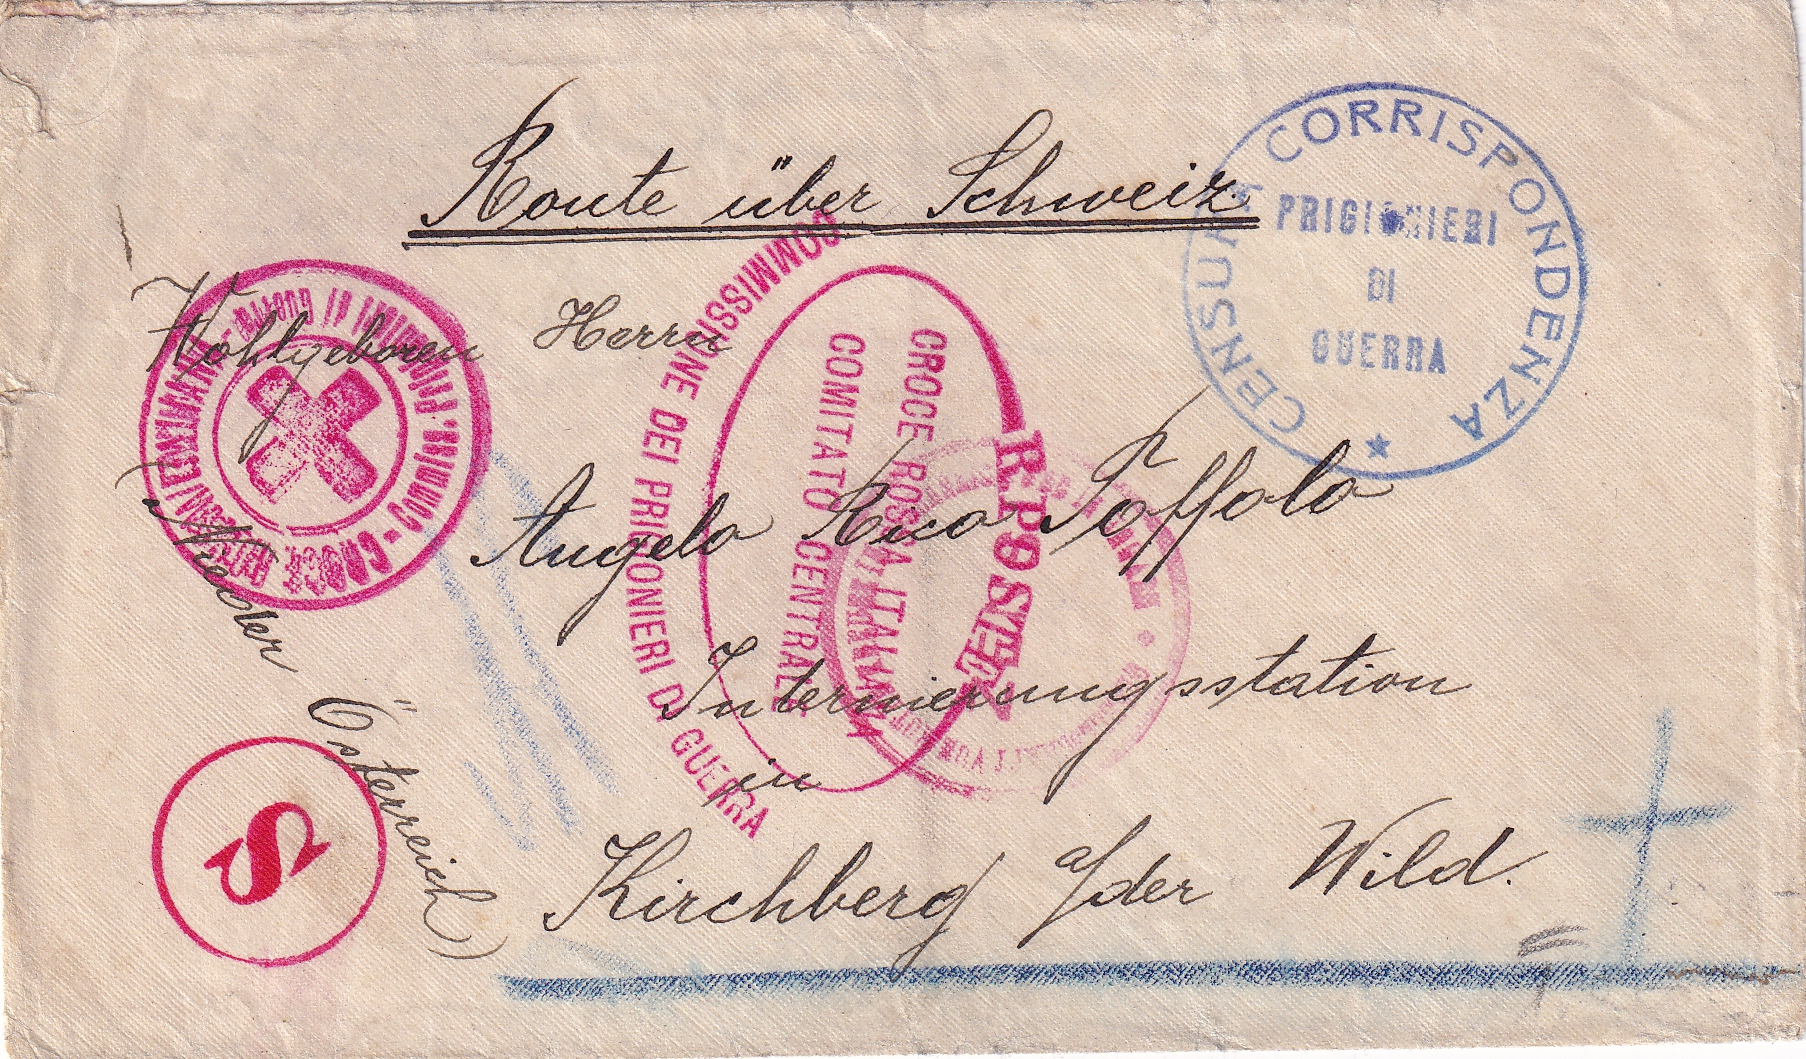 Route über Schweiz
CENSURA CORRISPONDENZA
PRIGIONIERI
DI
GUERRA
Wohlgeboren Herrn
Angelo Rico Toffolo
Internierungsstation
in
Kirchberg a/der Wild.
Nieder Österreich)
COMMISSIONE DEI PRIGIONIERI DI GUERRA
CROCE ROSSA ITALIANA
COMITATO CENTRALE
CROCE ROSSA
Commiss. Prigionieri di guerra
S